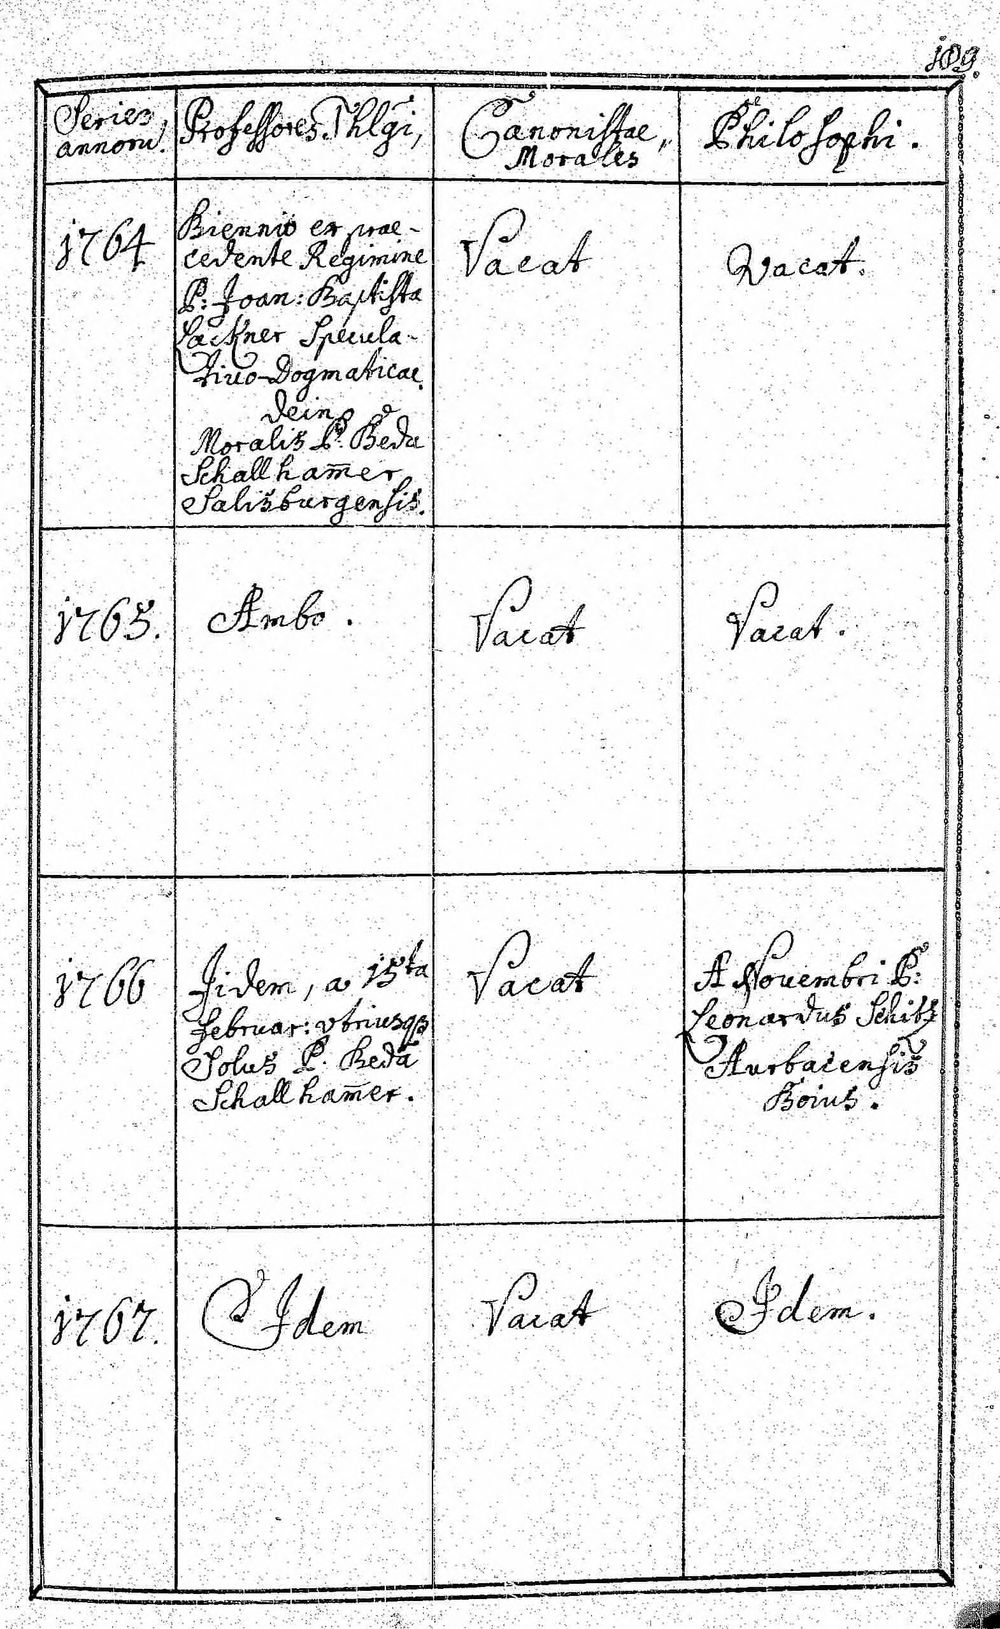 109.
Series annorū.
Professores Thlgi,
Canonistae,
Morales
Philosophi.
1764
Biennio ex prae-
cedente Regimine
P: Joan: Baptista
Lackner Specula-
tivo-Dogmaticae,
dein
Moralis P. Beda
Schallham̄er
Salisburgensis.
Vacat
Vacat.
1765.
Ambo.
Vacat
Vacat.
1766
Jidem, a 15ta
Februar: vtriusqȝ
Solus P. Beda
Schallham̄er.
Vacat
A Novembri P:
Leonardus Schitz
Aurbacensis
Boius.
1767.
Idem
Vacat
Idem.